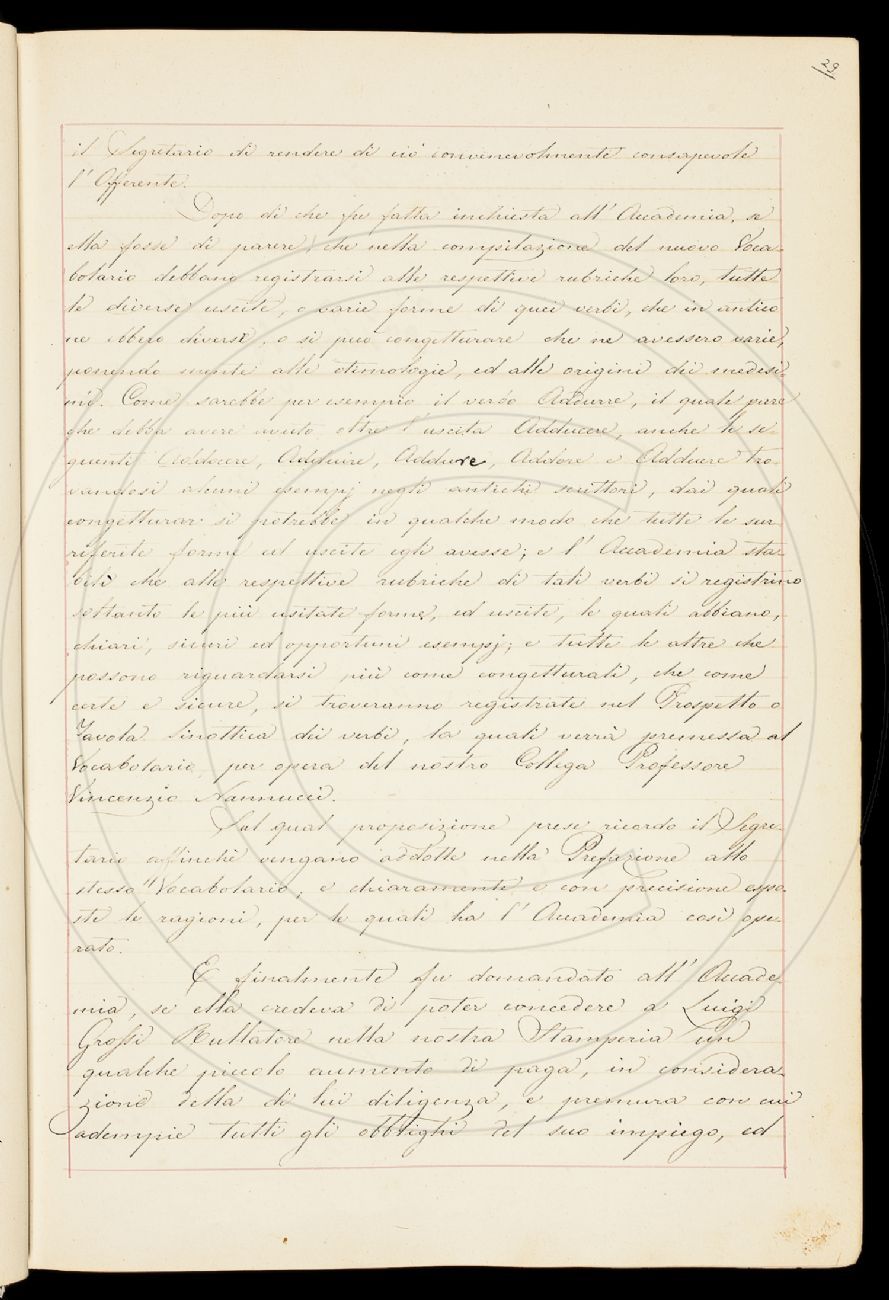 29
il Segretario di rendere di ciò convenevolmente consapevole
l' Offerente.
Dopo di che fu fatta inchiesta all' Accademia, se
ella fosse di parere, che nella compilazione del nuovo Voca-
bolario debbano registrarsi alle respettive rubriche loro, tutte
le diverse uscite, o varie forme di quei verbi, che in antico
ne ebbero diverse, o si può congetturare che ne avessero varie,
ponendo mente alle etimologie, ed alle origini dei medesi-
mi. Come sarebbe per esempio il verbo Addurre, il quale pare
che debba avere avuto oltre l' uscita Adducere, anche le se-
guenti Adducere, Adduire, Addure, Addore e Adduere tro-
vandosi alcuni esempj negli antichi scrittori, dai quali
congetturar si potrebbe in qualche modo che tutte le sur-
riferite forme ed uscite egli avesse; e l' Accademia sta-
bilì che alle respettive rubriche di tali verbi si registrino
soltanto le più usitate forme, ed uscite, le quali abbiano,
chiari, sicuri ed opportuni esempj; e tutte le altre che
possono riguardarsi più come congetturali, che come
certe e sicure, si troveranno registrate nel Prospetto o
Tavola Sinottica dei verbi, la quale verrà premessa al
Vocabolario, per opera del nostro Collega Professore
Vincenzio Nannucci.
Sul qual proposizione prese ricordo il Segre-
tario affinchè vengano addotte nella Prefazione allo
stesso Vocabolario, e chiaramente e con precisione espo-
ste le ragioni, per le quali ha l' Accademia così ope-
rato.
E finalmente fu domandato all' Accade-
mia, se ella credeva di poter concedere a Luigi
Grossi Rullatore nella nostra Stamperia un
qualche piccolo aumento di paga, in considera-
zione della di lui diligenza, e premura con cui
adempie tutti gli obblighi del suo impiego, ed